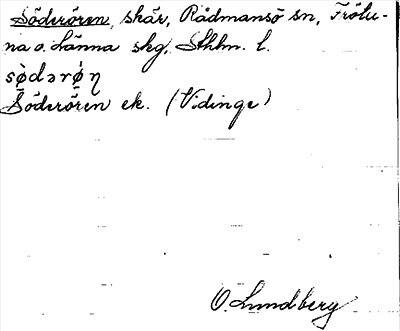 Söderören, skär, Rådmansö sn, Frötu-
na o. Länna skg, Sthlm. l.
sø̀dərø̀ŋ
Söderören ek. (Vidinge)
O. Lundberg